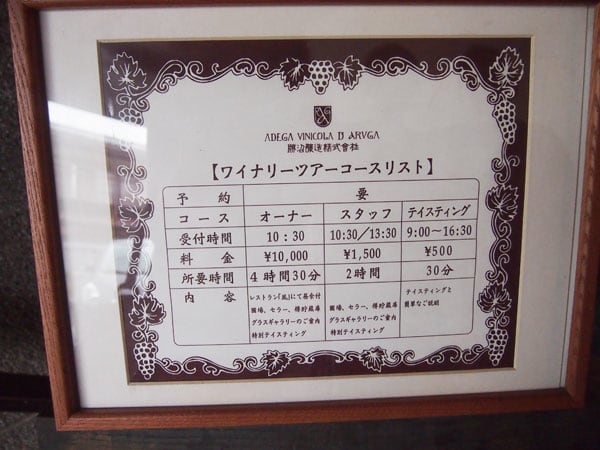 ADEGA VINICOLA D ARVGA
勝沼醸造株式會社
【ワイナリーツアーコースリスト】
予約 要
コース オーナー スタッフ テイスティング
受付時間 10：30 10:30/13:30 9:00〜16:30
料金 ¥10,000 ¥1,500 ¥500
所要時間 4時間30分 2時間 30分
内容
レストラン『風』にて昼食付
圃場、セラー、樽貯蔵庫
グラスギャラリーのご案内
特別テイスティング
圃場、セラー、樽貯蔵庫
グラスギャラリーのご案内
特別テイスティング
テイスティングと
簡単なご説明